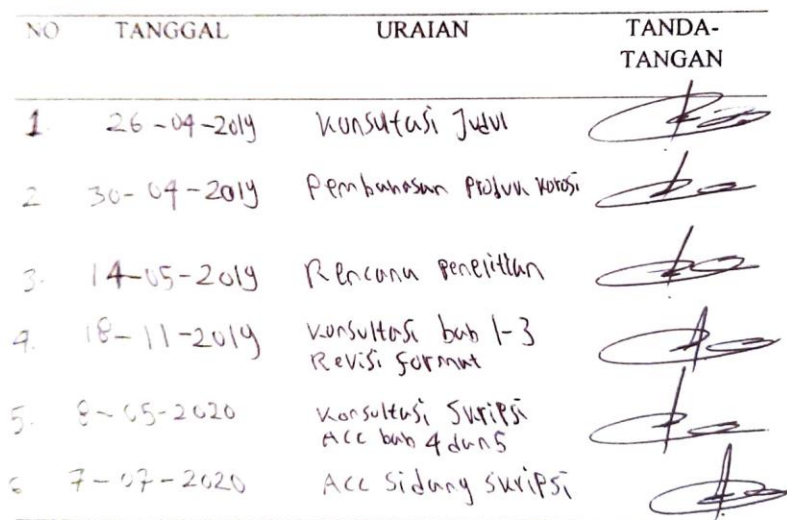 NO TANGGAL URAIAN TANDA-
TANGAN
1 26-04-2019 Konsultasi Judul
2 30-04-2019 Pembahasan Produk Korosi
3. 14-05-2019 Rencana Penelitian
4. 18-11-2019 Konsultasi bab 1-3
Revisi format
5. 8-05-2020 Konsultasi Skripsi
Acc bab 4 dan 5
6 7-07-2020 Acc Sidang Skripsi